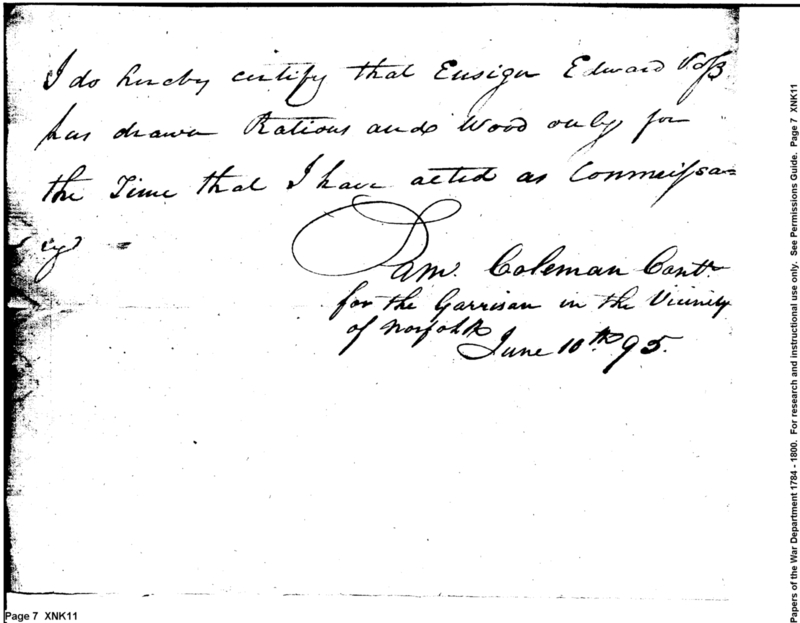 I do hereby certify that Ensign Edward Voss
has drawn Rations and Wood only for
the Time that I have acted as Commissa=
ry =
Sam. Coleman Contr
for the Garrison in the Vicinity
of Norfolk
June 10th 95.
Page 7 XNK11
Papers of the War Department 1784 - 1800. For research and instructional use only. See Permissions Guide. Page 7 XNK11